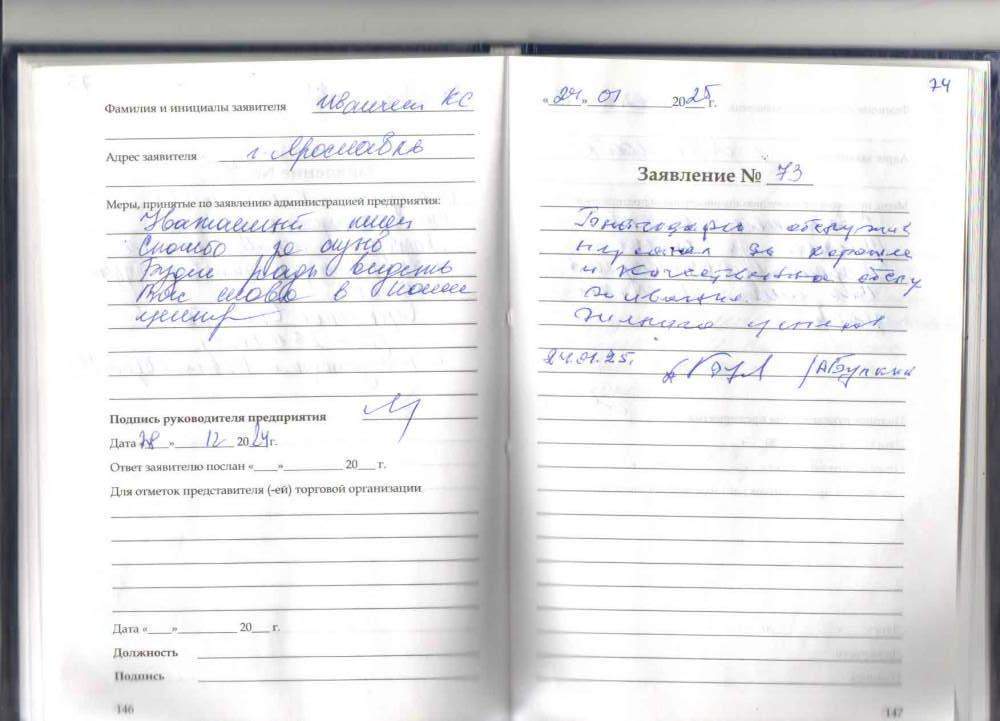 Фамилия и инициалы заявителя КС
Адрес заявителя г Ярославль
Меры, принятые по заявлению администрацией предприятия:
Уважаемый
Спасибо за
Будем рады видеть
Вас снова в нашем
центре
Подпись руководителя предприятия
Дата 28 » 12 2024г.
Ответ заявителю послан «____» ________ 20___ г.
Для отметок представителя (-ей) торговой организации
Дата «____» ________ 20___ г.
Должность
Подпись
146
74
«24» 01 2025г.
Заявление № 73
Благодарю обслужив
персонал за хорошее
и качественное обслу
живание.
успехов
24.01.25.
147